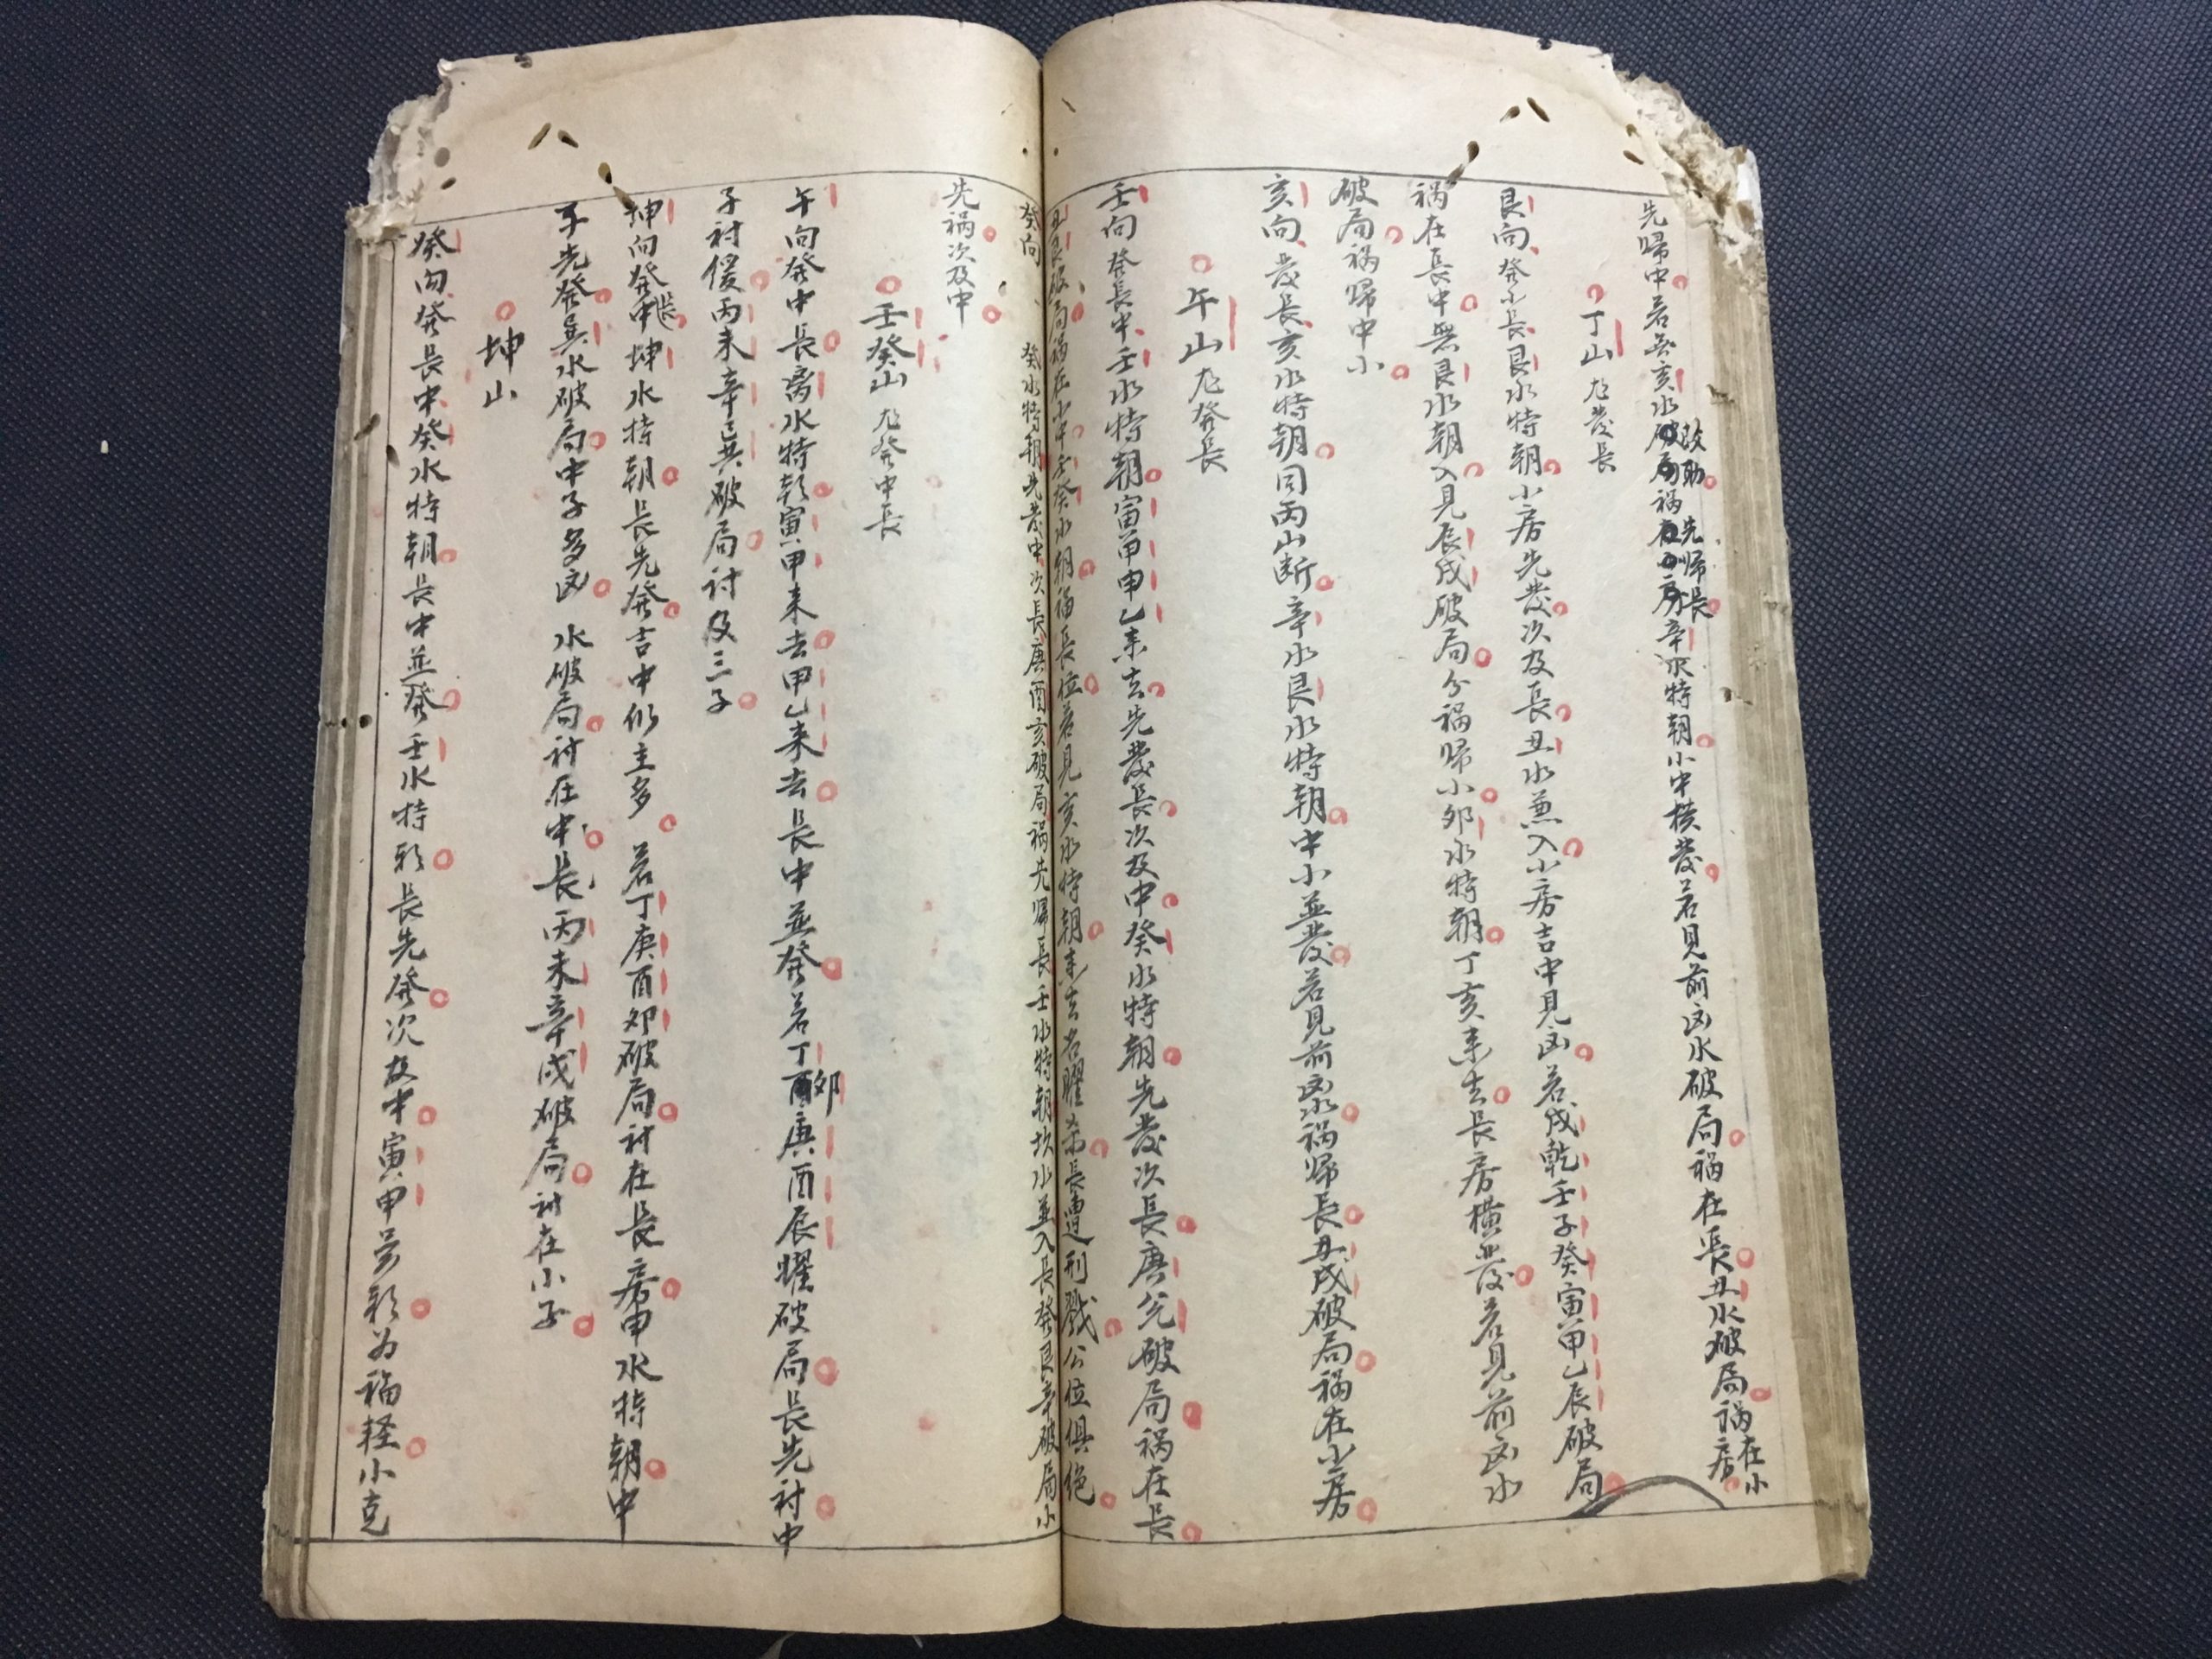 先歸中若無亥水破局改助祸在中房先归長房辛水特朝小中横發若見前凶水破局祸在長丑水破局祸在小房
丁山尨發長
艮向發小長艮水特朝小房先發次及長丑水兼入小房吉中見凶若戌乾壬子癸寅甲乙辰破局
祸在長中無艮水朝入見辰戌破局分祸歸小卯水特朝丁亥来去長房横發若見前凶水
破局祸歸中小
亥向發長亥水特朝同丙山断辛水艮水特朝中小並發若見前凶水祸歸長丑戌破局祸在小房
午山尨發長
壬向發長中壬水特朝寅甲申乙来去先發長次及中癸水特朝先發次長庚兌破局祸在長
丑艮破局祸在小中子癸水朝福長位若見亥水特朝来去名曜杀長遭刑戮公位俱绝
癸向 癸水特朝先發中次長庚酉亥破局祸先歸長壬水特朝坎水並入長發艮辛破局小
先祸次及中
壬癸山尨發中長
午向發中長离水特朝寅甲来去甲乙来去長中並發若丁卯庚酉辰曜破局長先討中
子討缓丙未辛巽破局討及三子
坤向發中長坤水特朝長先發吉中似主多 若丁庚酉卯破局討在長房申水特朝中
子先發巽水破局中子多凶 水破局討在中長丙未辛戌破局討在小子
坤山
癸向發長中癸水特朝長中並發壬水特朝長先發次及中寅申异朝为福輕小克